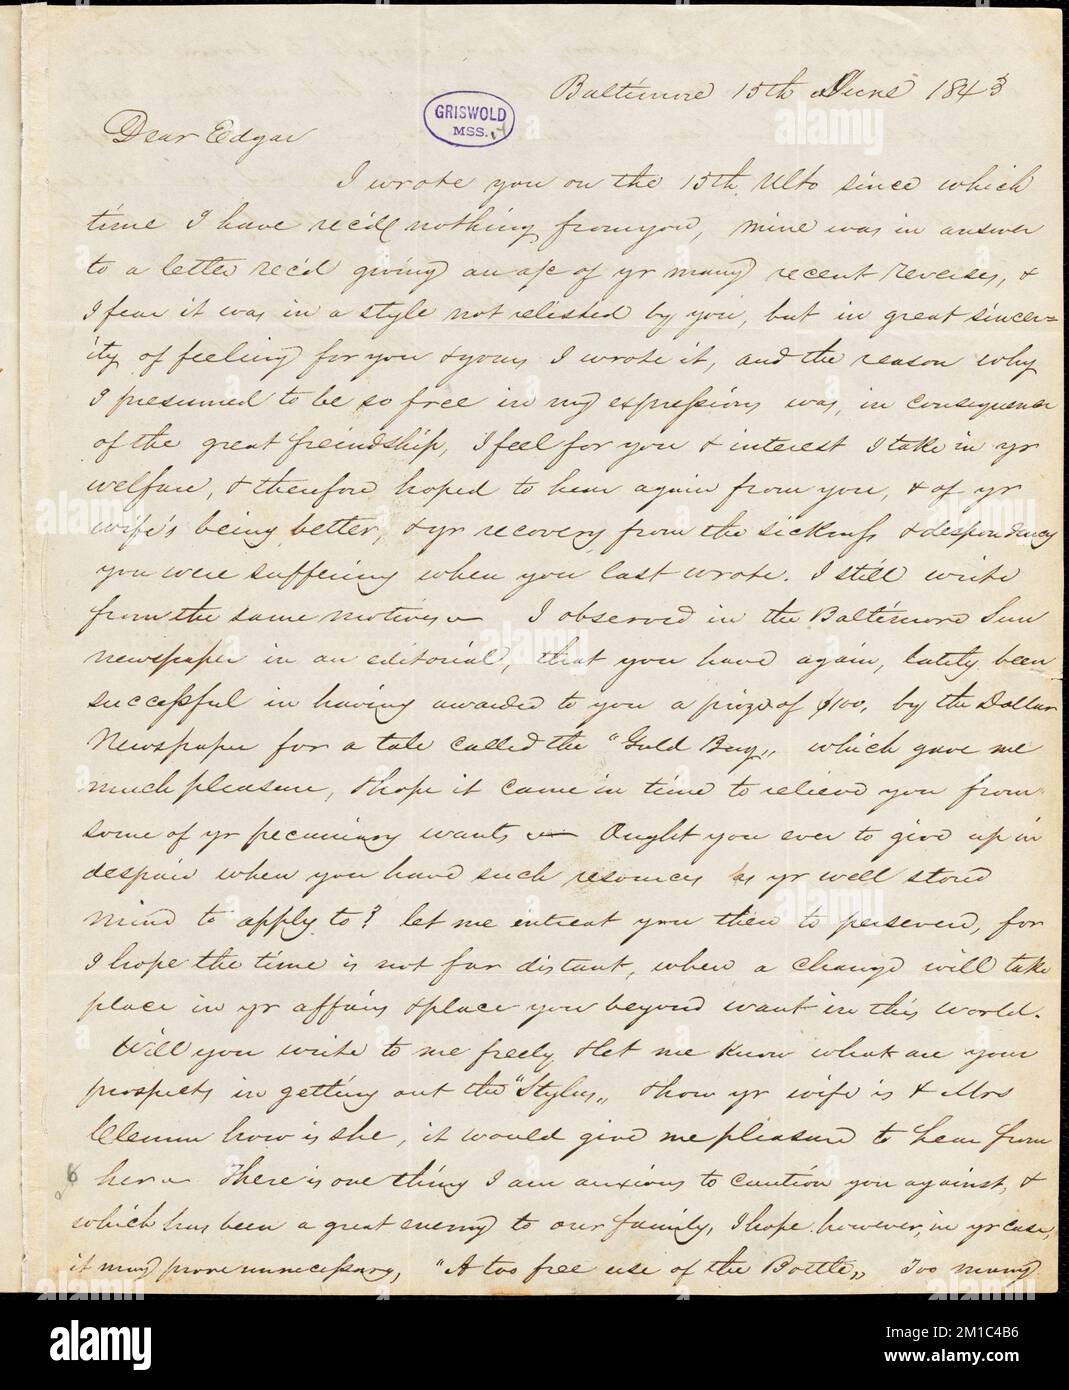 Baltimore 15th June 1843
GRISWOLD
MSS.
Dear Edgar
I wrote you on the 15th Ulto since which
time I have rec'd nothing from you, mine was in answer
to a letter rec'd giving an a/c of yr many recent reverses, &
I fear it was in a style not relished by you, but in great sincer=
ity of feeling for you & yours I wrote it, and the reason why
I presumed to be so free in my expressions was, in consequence
of the great freindship, I feel for you & interest I take in yr
welfare, & therefore hoped to hear again from you, & of yr
wife's being better, & yr recovery from the sickness & despondency
you were suffering when you last wrote. I still write
from the same motives — I observed in the Baltimore Sun
newspaper in an editorial, that you have again, lately been
successful in having awarded to you a prize of $100, by the Dollar
Newspaper for a tale called the "Gold Bug,, which gave me
much pleasure, & hope it came in time to relieve you from
some of yr pecuniary wants — Ought you ever to give up in
despair when you have such resources as yr well stored
mind to apply to? let me entreat you then to persevere, for
I hope the time is not far distant, when a change will take
place in yr affairs & place you beyond want in this world.
Will you write to me freely & let me know what are your
prospects in getting out the "Stylus,, & how yr wife is & Mrs
Clemm how is she, it would give me pleasure to hear from
her — There is one thing I am anxious to caution you against, &
which has been a great enemy to our family, I hope, however, in yr case,
it may prove unnecessary, "A too free use of the Bottle,, Too many
alamy
Image ID: 2M1C4B6
www.alamy.com